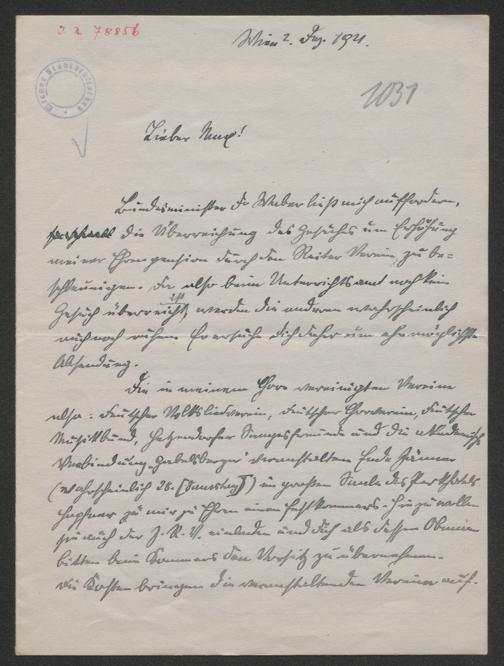 I. N. 78856
Wien 2. Dez. 1921.
1031
Lieber Max!
Bundesminister Dr Weber ließ mich auffordern,
die Überreichung des Gesuches um Erhöhung
meiner Ehrenpension durch den Reiter Verein, zu be-
schleunigen. Da also beim Unterrichtsamt noch kein
Gesuch überreicht ist, werden die anderen wahrscheinlich
auch noch ruhen. Er ersuche dich daher um ehe möglichste
Absendung.
Die in meinem Chore vereinigten Vereine
also: Deutscher Volksliedverein, Deutscher Chorverein, Deutscher
Musikbund, Hetzendorfer Sangesfreunde und die akademische
Verbindung „Gabelsberger" veranstalten Ende Jänner
(wahrscheinlich 28. [Samstag]) im großen Saale des Parkhotels
Hopfner zu mir zu Ehren einen Festkommers. Hiezu wollen
sie auch der J. R. V. einladen und dich als dessen Obmann
bitten beim Kommers den Vorsitz zu übernehmen.
Die Kosten bringen die veranstaltenden Vereine auf.